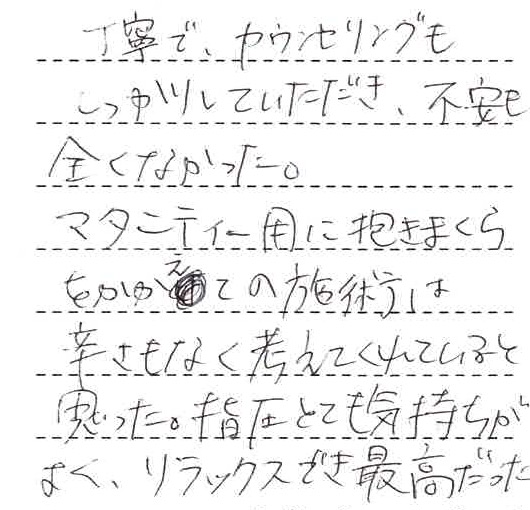 丁寧で、カウンセリングも
しっかりしていただき、不安も
全くなかった。
マタニティー用に抱きまくら
をかかえての施術は
辛さもなく考えてくれていると
思った。指圧とても気持ちが
よく、リラックスでき最高だった